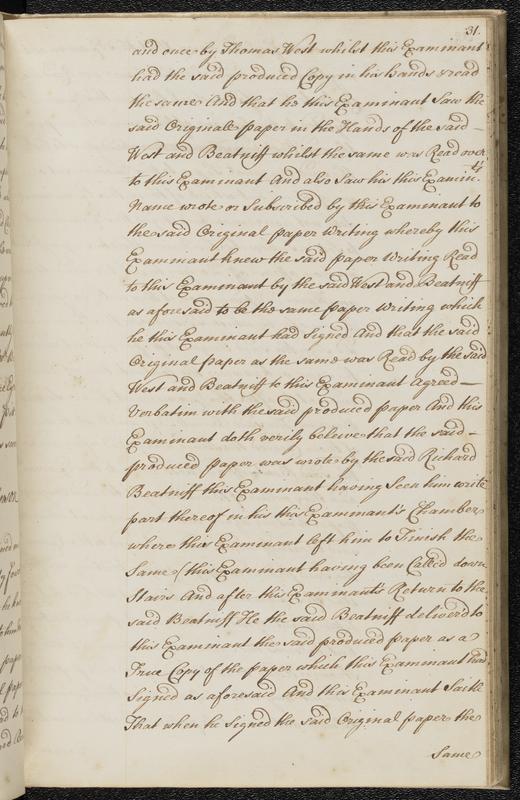 31.
and once by Thomas West whilst this Examinant
had the said produced Copy in his hands & read
the same And that he this Examinant Saw the
said Original paper in the Hands of the said –
West and Beatniff whilst the same was Read over
to this Examinant And also Saw his this Examin.ts
Name wrote or Subscribed by this Examinant to
the said Original paper Writing whereby this
Examinant knew the said paper Writing Read
to this Examinant by the said West and Beatniff
as aforesaid to be the same paper Writing which
he this Examinant had Signed And that the said
Original paper as the same was Read by the said
West and Beatniff to this Examinant agreed –
Verbatim with the said produced paper And this
Examinant doth verily believe that the said –
produced paper was wrote by the said Richard
Beatniff this Examinant having Seen him write
part thereof in his this Examinant's Chamber
where this Examinant left him to Finish the
Same (this Examinant having been Called down
Stairs And after this Examinant's Return to the
said Beatniff He the said Beatniff deliver'd to
this Examinant the said produced paper as a
True Copy of the paper which this Examinant had
Signed as aforesaid And this Examinant Saith
That when he Signed the said Original paper the
Same